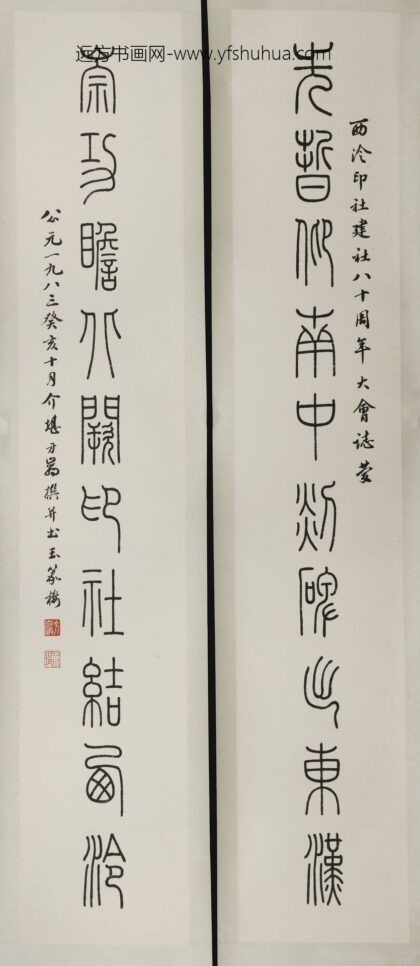 远方书画网-www.yfshuhua.com
西泠印社建社八十周年大會誌慶
先哲仰南中碑出東漢
崇功瞻北闕印社結西泠
公元一九八三癸亥十月介堪方嵒撰并書玉篆樓